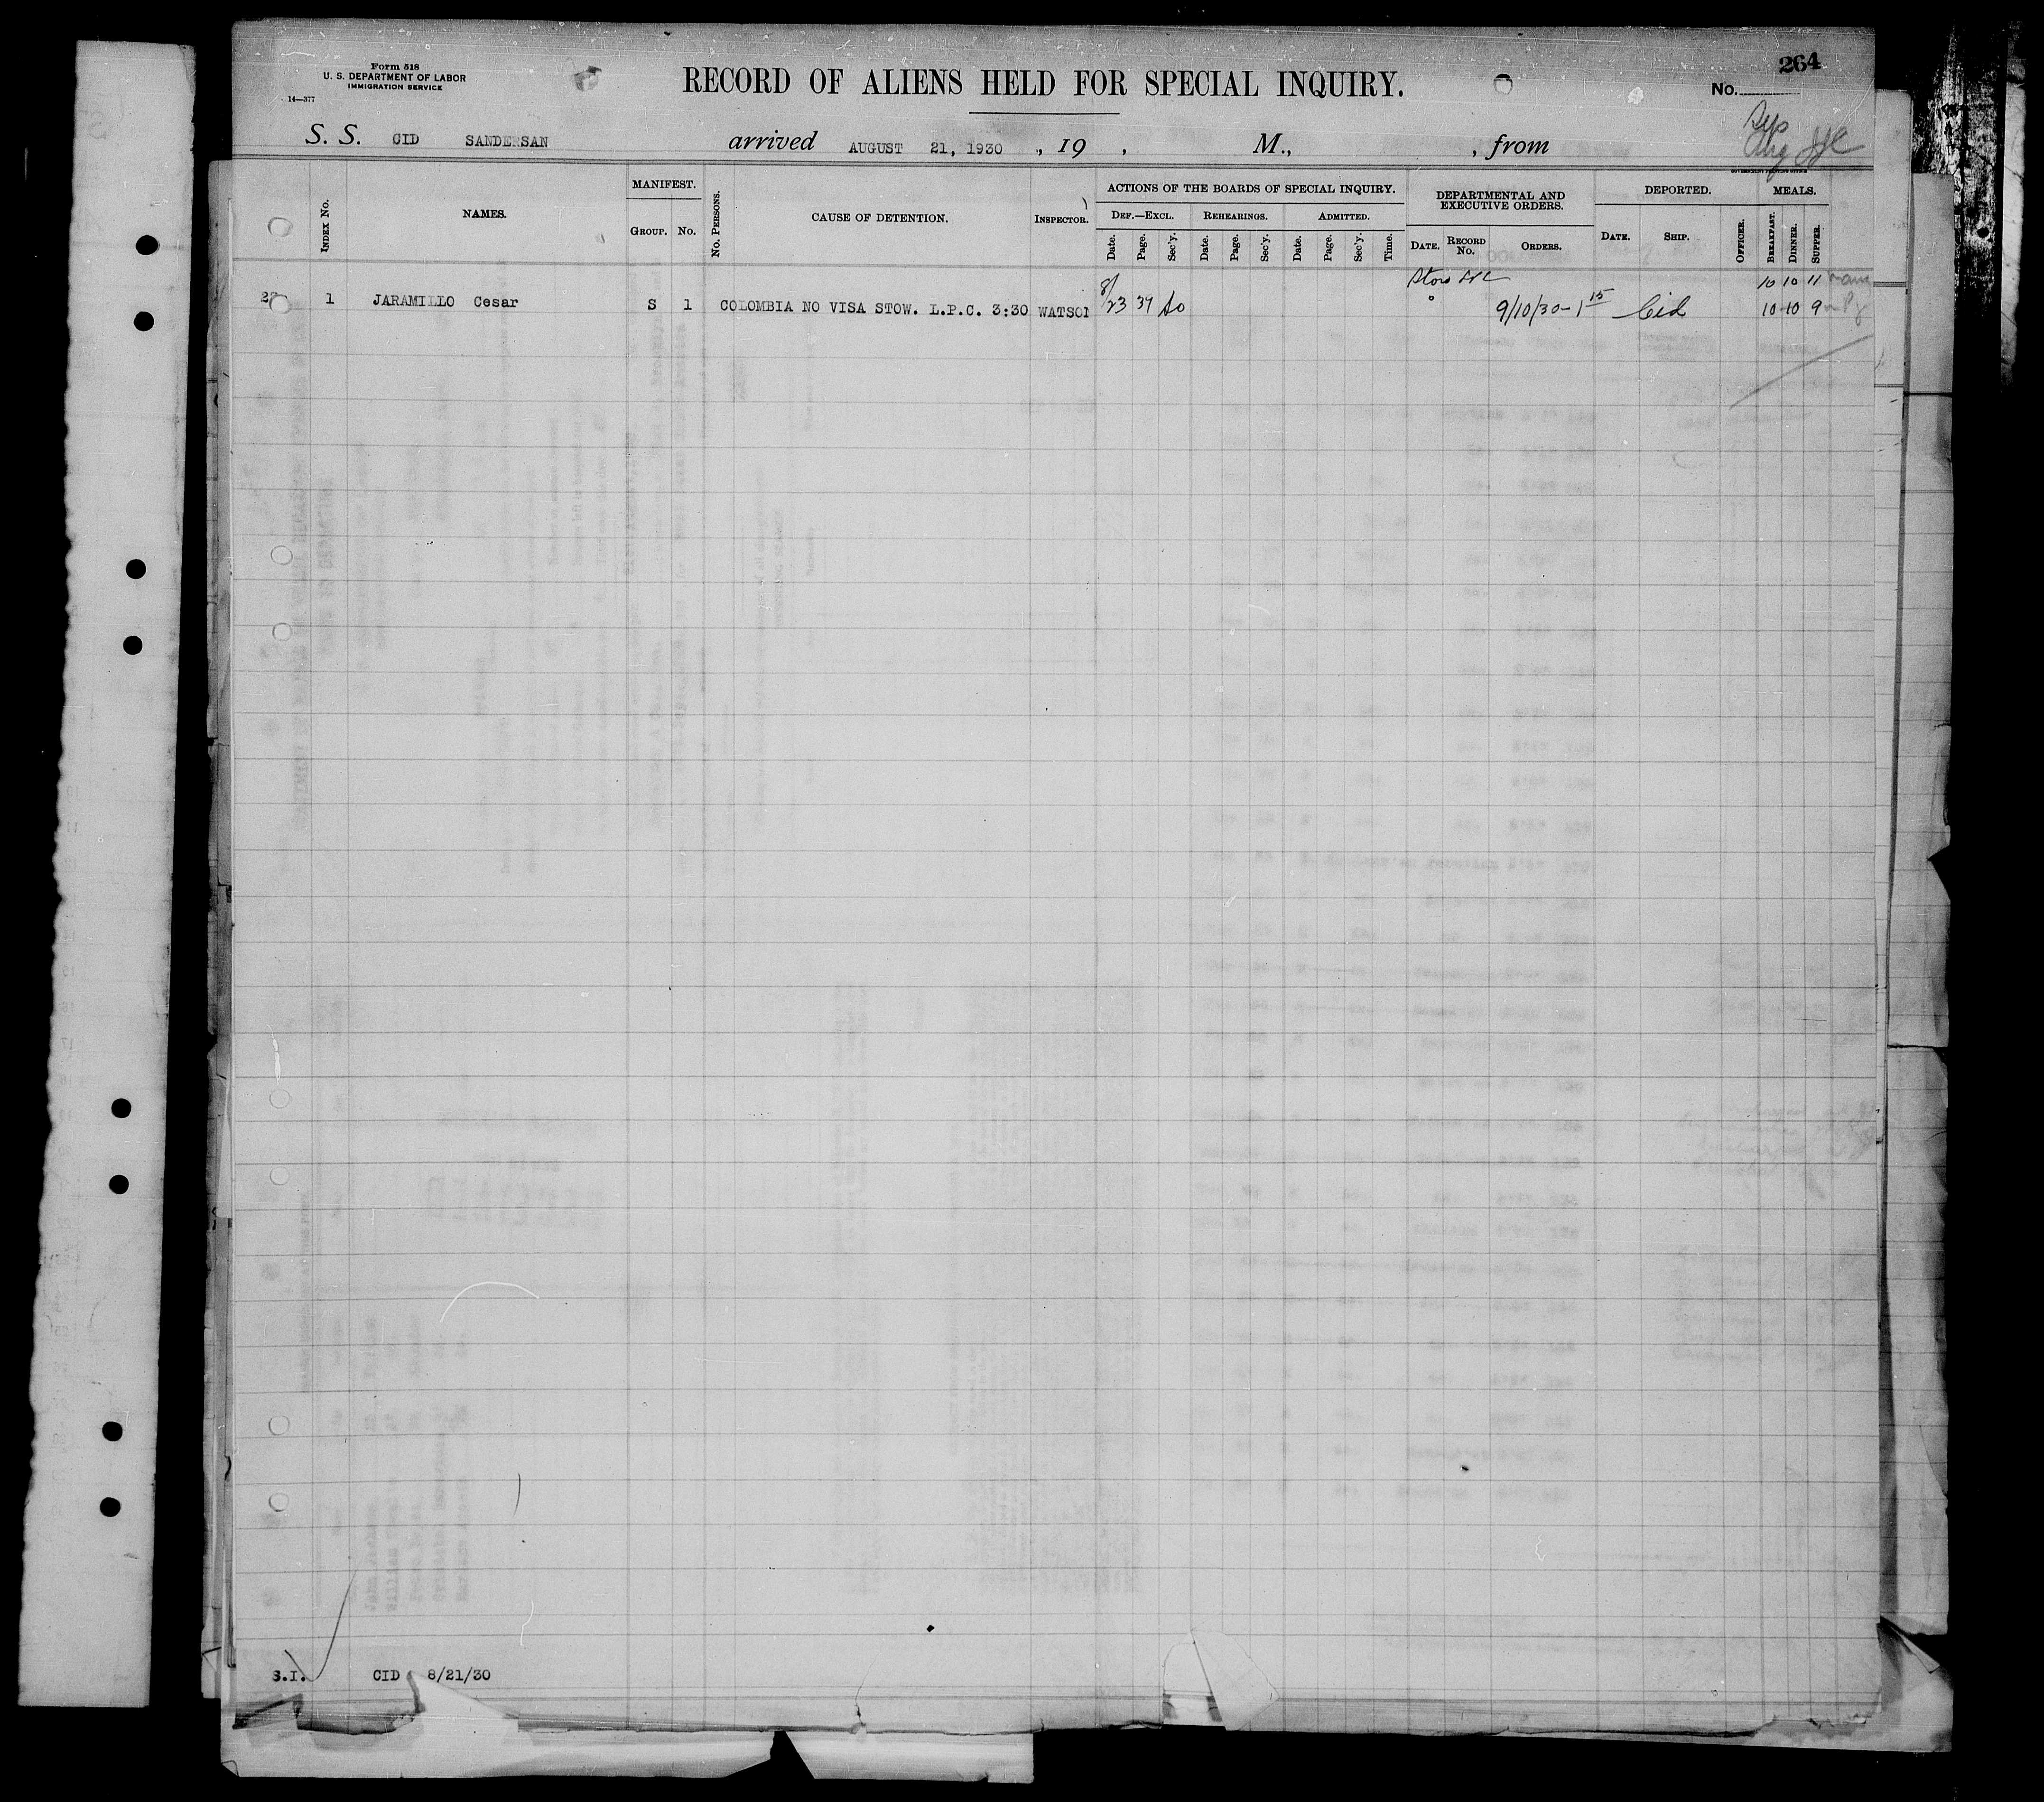 264
Form 518
U. S. DEPARTMENT OF LABOR
IMMIGRATION SERVICE
14—377
RECORD OF ALIENS HELD FOR SPECIAL INQUIRY.
No.
S. S. CID SANDERSAN arrived AUGUST 21, 1930 , 19 , M., , from
Aug
GOVERNMENT PRINTING OFFICE
INDEX No.
NAMES.
MANIFEST.
GROUP. No.
No. PERSONS.
CAUSE OF DETENTION.
INSPECTOR.
ACTIONS OF THE BOARDS OF SPECIAL INQUIRY.
DEF.—EXCL. REHEARINGS. ADMITTED.
Date. Page. Sec'y. Date. Page. Sec'y. Date. Page. Sec'y. Time.
DEPARTMENTAL AND
EXECUTIVE ORDERS.
DATE. RECORD No. ORDERS.
DEPORTED.
DATE. SHIP. OFFICER.
MEALS.
BREAKFAST. DINNER. SUPPER.
8/ 10 10 11
1 JARAMILLO Cesar S 1 COLOMBIA NO VISA STOW. L.P.C. 3:30 WATSON 23 37 9/10/30-1 15 Cid 10 10 9
S.I. CID 8/21/30